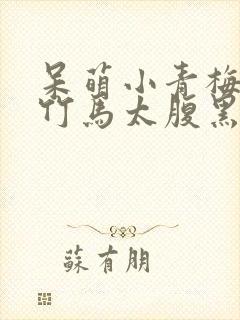 呆萌小青梅
竹馬太腹黑
蘇有朋